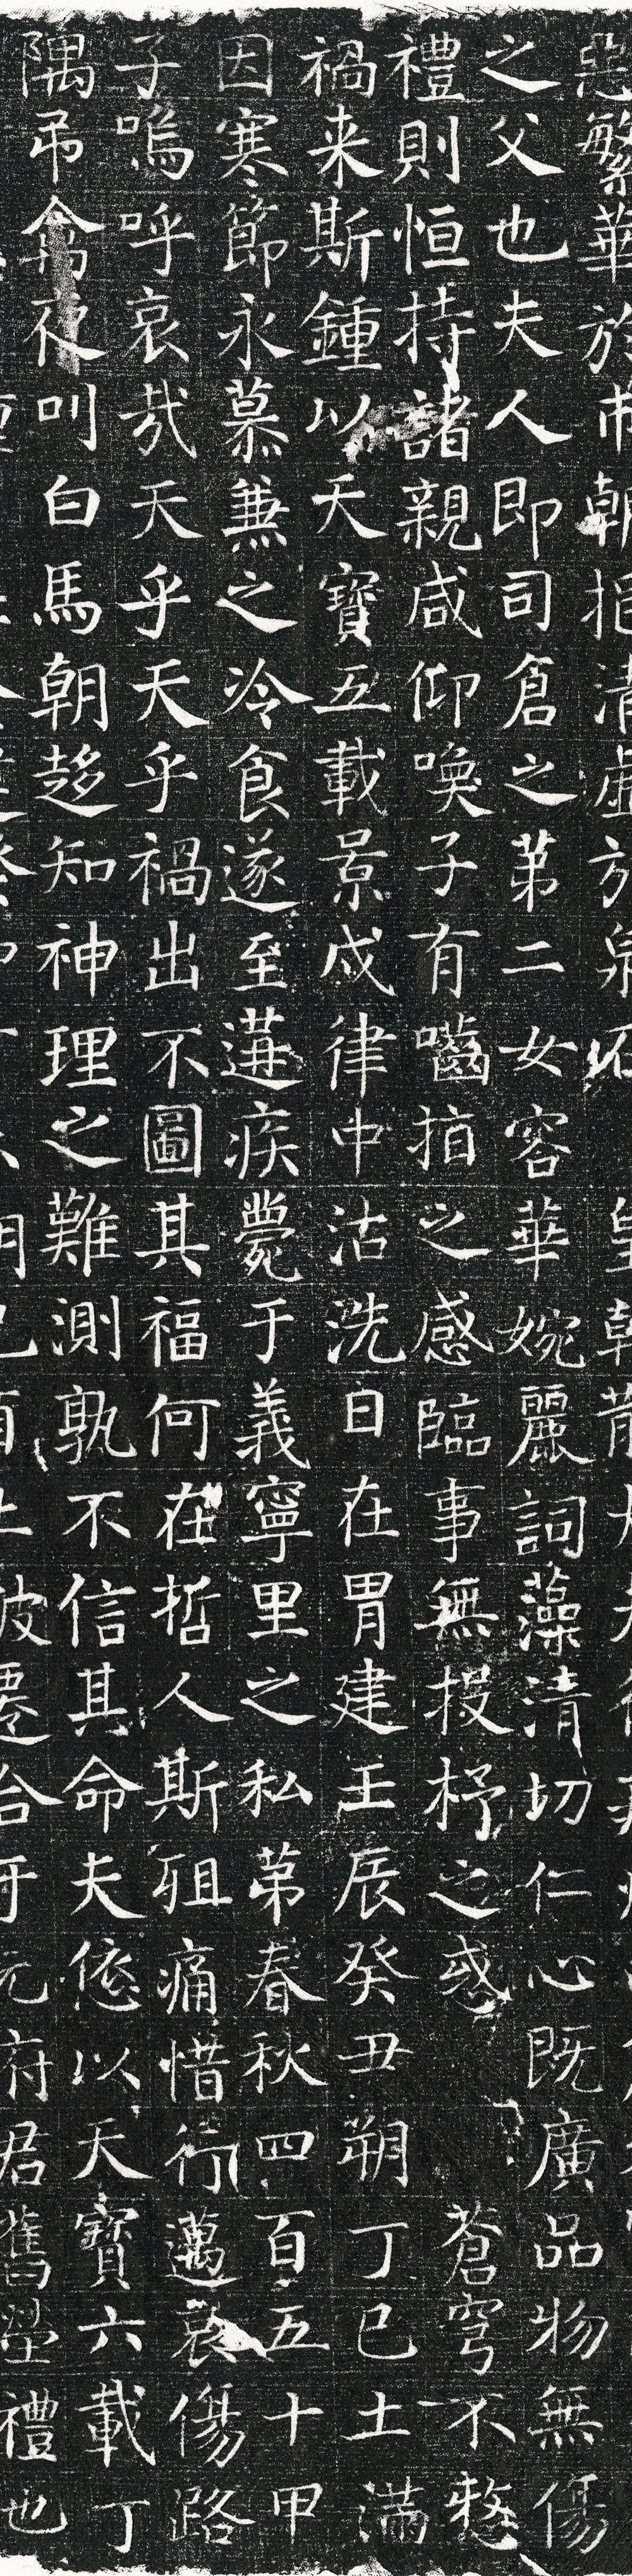 繁華於市朝挹清虛於泉石 皇朝散
之父也夫人即司倉之苐二女容華婉麗詞藻清切仁心既廣品物無傷
禮則恒持諸親咸仰喚子有嚙指之感臨事無投杼之惑 蒼穹不憖
禍来斯鍾以天寶五載景戍律中沽洗日在胃建壬辰癸丑朔丁巳土滿
因寒節永慕兼之冷食遂至遘疾薨于義寧里之私苐春秋四百五十甲
子嗚呼哀哉天乎天乎禍出不圖其福何在哲人斯殂痛惜行邁哀傷路
隅吊禽夜叫白馬朝趍知神理之難測孰不信其命夫以天寶六載丁
府君舊塋禮也